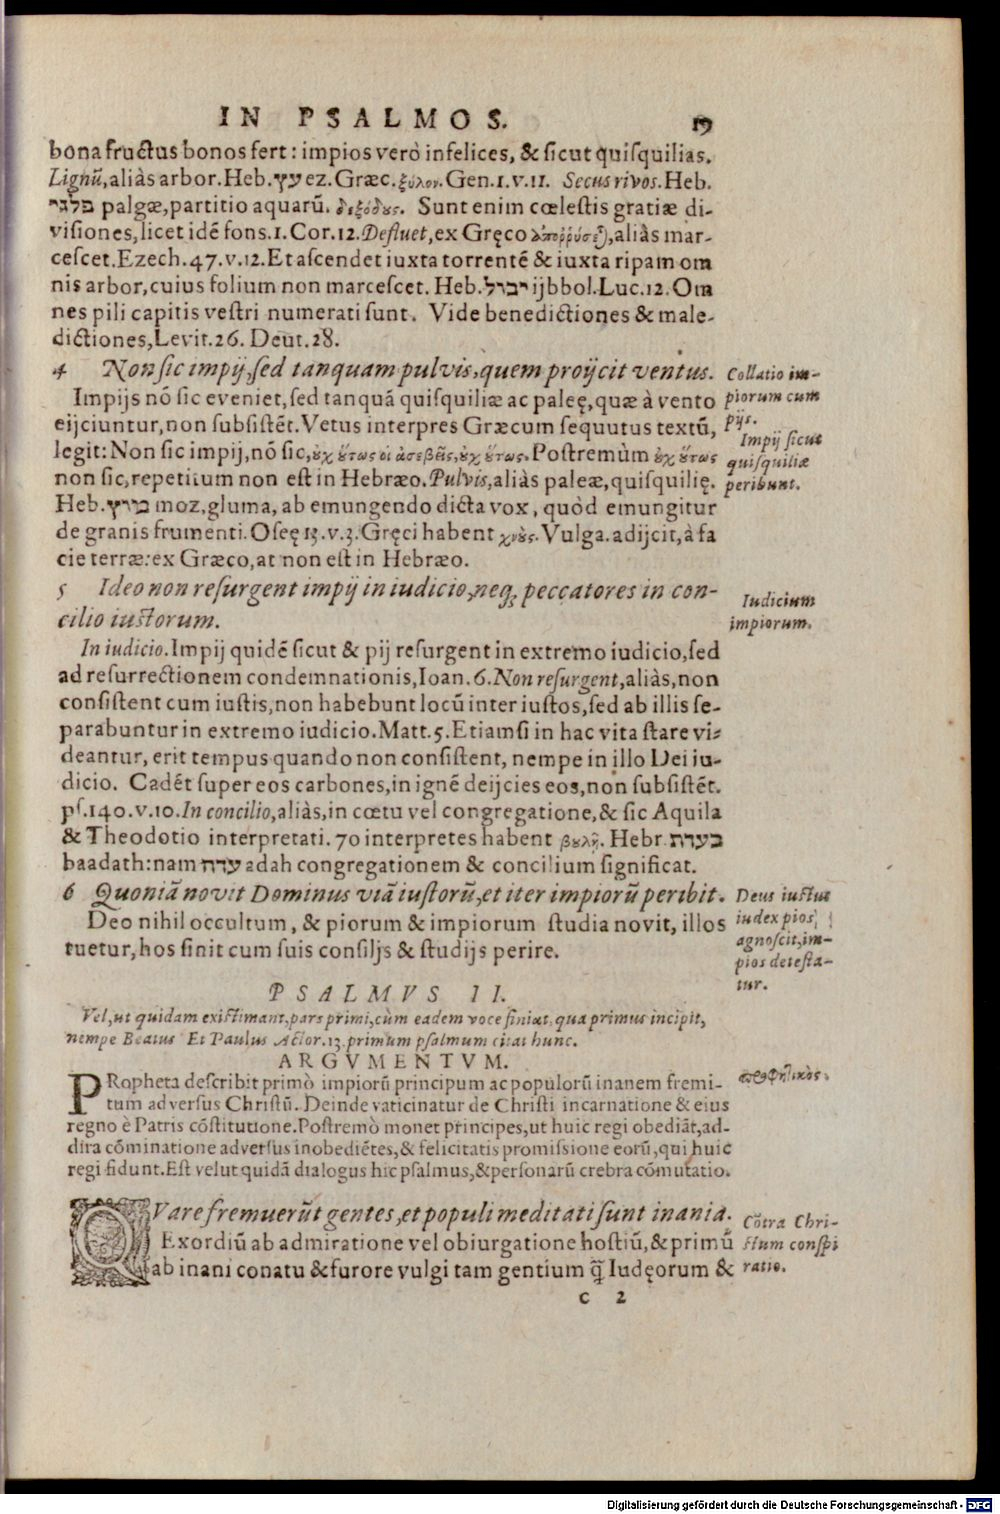 IN PSALMOS. 19
bona fructus bonos fert: impios verò infelices, & sicut quisquilias.
Lignũ, aliàs arbor. Heb. עץ ez. Græc. ξύλον. Gen. 1. v. 11. Secus rivos. Heb.
פלגי palgæ, partitio aquarũ. διεξόδους. Sunt enim cœlestis gratiæ di-
visiones, licet idẽ fons. 1. Cor. 12. Defluet, ex Gręco aliàs mar-
cescet. Ezech. 47. v. 12. Et ascendet iuxta torrentẽ & iuxta ripam om
nis arbor, cuius folium non marcescet. Heb. יבול ijbbol. Luc. 12. Om
nes pili capitis vestri numerati sunt. Vide benedictiones & male-
dictiones, Levit. 26. Deut. 28.
4 Non sic impij, sed tanquam pulvis, quem proijcit ventus.
Collatio im-
piorum cum
pijs.
Impijs nõ sic eveniet, sed tanquã quisquiliæ ac paleę, quæ à vento
eijciuntur, non subsistẽt. Vetus interpres Græcum sequutus textũ,
legit: Non sic impij, nõ sic, οὐχ οὕτως οἱ ἀσεβεῖς, οὐχ οὕτως. Postremùm οὐχ οὕτως
non sic, repetitum non est in Hebræo. Pulvis, aliàs paleæ, quisquilię.
Impij sicut
quisquiliæ
peribunt.
Heb. מוץ moz, gluma, ab emungendo dicta vox, quòd emungitur
de granis frumenti. Oseę 13. v. 3. Gręci habent χνοῦς. Vulga. adijcit, à fa
cie terræ: ex Græco, at non est in Hebræo.
5 Ideo non resurgent impij in iudicio, neq; peccatores in con-
cilio iustorum.
Iudicium
impiorum.
In iudicio. Impij quidẽ sicut & pij resurgent in extremo iudicio, sed
ad resurrectionem condemnationis, Ioan. 6. Non resurgent, aliàs, non
consistent cum iustis, non habebunt locũ inter iustos, sed ab illis se-
parabuntur in extremo iudicio. Matt. 5. Etiamsi in hac vita stare vi-
deantur, erit tempus quando non consistent, nempe in illo Dei iu-
dicio. Cadẽt super eos carbones, in ignẽ deijcies eos, non subsistẽt.
ps. 140. v. 10. In concilio, aliàs, in cœtu vel congregatione, & sic Aquila
& Theodotio interpretati. 70 interpretes habent βουλῇ. Hebr. בעדת
baadath: nam עדה adah congregationem & concilium significat.
6 Quoniã novit Dominus viã iustorũ, et iter impiorũ peribit.
Deus iustus
iudex pios
agnoscit, im-
pios detesta-
tur.
Deo nihil occultum, & piorum & impiorum studia novit, illos
tuetur, hos sinit cum suis consiljs & studijs perire.
PSALMVS II.
Vel, ut quidam existimant, pars primi, cùm eadem voce finiat, qua primus incipit,
nempe Beatus Et Paulus Actor. 13. primum psalmum citat hunc.
ARGVMENTVM.
PRopheta describit primò impiorũ principum ac populorũ inanem fremi-
προφητικὸς.
tum adversus Christũ. Deinde vaticinatur de Christi incarnatione & eius
regno è Patris cõstitutione. Postremò monet principes, ut huic regi obediãt, ad-
dita cõminatione adversus inobediẽtes, & felicitatis promissione eorũ, qui huic
regi fidunt. Est velut quidã dialogus hic psalmus, & personarũ crebra cõmutatio.
QVare fremuerũt gentes, et populi meditati sunt inania.
Cõtra Chri-
stum conspi
ratio.
Exordiũ ab admiratione vel obiurgatione hostiũ, & primũ
ab inani conatu & furore vulgi tam gentium q̃ Iudęorum &
c 2
Digitalisierung gefördert durch die Deutsche Forschungsgemeinschaft - DFG